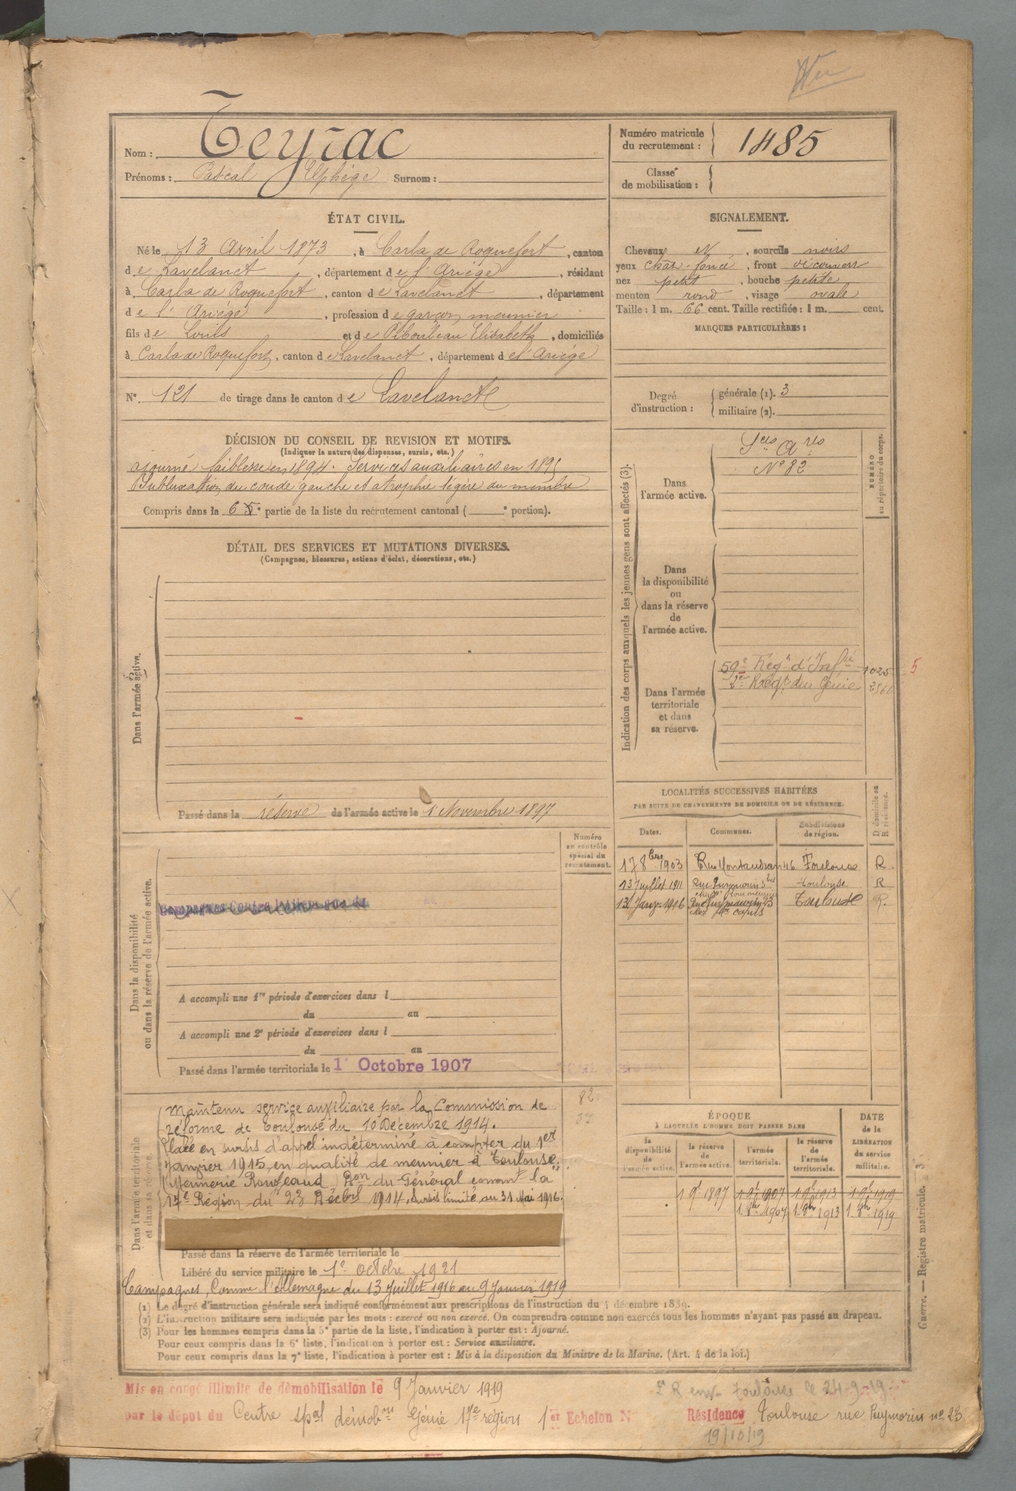 Nom : Teyrac
Prénoms : Pascal Elphège Surnom :
Numéro matricule du recrutement : 1485
Classe de mobilisation :
ÉTAT CIVIL.
Né le 13 Avril 1873, à Carla de Roquefort, canton
de Lavelanet, département de l'Ariège, résidant
à Carla de Roquefort, canton de Lavelanet, département
de l'Ariège, profession de garçon meunier
fils de Louis et de Elisabeth, domiciliés
à Carla de Roquefort, canton de Lavelanet, département de l'Ariège
N° 121 de tirage dans le canton de Lavelanet
SIGNALEMENT.
Cheveux N, sourcils noirs
yeux chat. foncé, front découvert
nez petit, bouche petite
menton rond, visage ovale
Taille : 1 m. 66 cent. Taille rectifiée : 1 m. cent.
MARQUES PARTICULIÈRES :
Degré d'instruction : générale (1). 3
militaire (2).
DÉCISION DU CONSEIL DE REVISION ET MOTIFS.
(Indiquer la nature des dispenses, sursis, etc.)
ajourné faiblesse en 1894. Services auxiliaires en 1895
Subluxation du coude gauche et atrophie légère du membre
Compris dans la 6 e partie de la liste du recrutement cantonal ( e portion).
DÉTAIL DES SERVICES ET MUTATIONS DIVERSES.
(Campagnes, blessures, actions d'éclat, décorations, etc.)
Dans l'armée active.
Passé dans la réserve de l'armée active le 1 Novembre 1897
Indication des corps auxquels les jeunes gens sont affectés (3).
NUMÉRO au répertoire du corps.
Dans l'armée active.
Sces Ares
N° 82
Dans la disponibilité ou dans la réserve de l'armée active.
Dans l'armée territoriale et dans sa réserve.
59e Régt d'Infie 1025 5
2e Régt du Génie
LOCALITÉS SUCCESSIVES HABITÉES
PAR SUITE DE CHANGEMENTS DE DOMICILE OU DE RÉSIDENCE.
Dates. Communes. Subdivisions de région. D domicile ou R résidence.
17 8bre 1903 Rue Montaudran 46 Toulouse R
13 Juillet 1911 Rue Puymorin Toulouse R
13 1916 Toulouse R.
Dans la disponibilité ou dans la réserve de l'armée active.
Numéro au contrôle spécial du recrutement.
A accompli une 1re période d'exercices dans l
du au
A accompli une 2e période d'exercices dans l
du au
Passé dans l'armée territoriale le 1er Octobre 1907
Dans l'armée territoriale et dans sa réserve.
Maintenu service auxiliaire par la Commission de
réforme de Toulouse du 10 Décembre 1914.
Placé en sursis d'appel indéterminé à compter du 1er
Janvier 1915 en qualité de meunier à Toulouse
(Meunerie Rouzeaud) Don du Général comant la
17e Région du 23 Décbre 1914. Sursis limité au 31 Mai 1916.
Passé dans la réserve de l'armée territoriale le
Libéré du service militaire le 1er octobre 1921
Campagnes, Contre l'Allemagne du 13 Juillet 1916 au 9 Janvier 1919
ÉPOQUE
À LAQUELLE L'HOMME DOIT PASSER DANS
la disponibilité de l'armée active. la réserve de l'armée active. l'armée territoriale. la réserve de l'armée territoriale. DATE de la LIBÉRATION du service militaire.
1 9bre 1897 1 9bre 1907 1 9bre 1913 1 9bre 1919
1 8bre 1907 1 8bre 1913 1 8bre 1919
(1) Le degré d'instruction générale sera indiqué conformément aux prescriptions de l'instruction du 4 décembre 1889.
(2) L'instruction militaire sera indiquée par les mots : exercé ou non exercé. On comprendra comme non exercés tous les hommes n'ayant pas passé au drapeau.
(3) Pour les hommes compris dans la 5e partie de la liste, l'indication à porter est : Ajourné.
Pour ceux compris dans la 6e liste, l'indication à porter est : Service auxiliaire.
Pour ceux compris dans la 7e liste, l'indication à porter est : Mis à la disposition du Ministre de la Marine. (Art. 4 de la loi.)
Guerre. — Registre matricule. 3
Mis en congé illimité de démobilisation le 9 Janvier 1919
par le dépôt du Centre spal démobon Génie 17e région 1er Echelon N°
Toulouse le 24-9-19
Résidence Toulouse rue Puymorin no 23
19/10/19